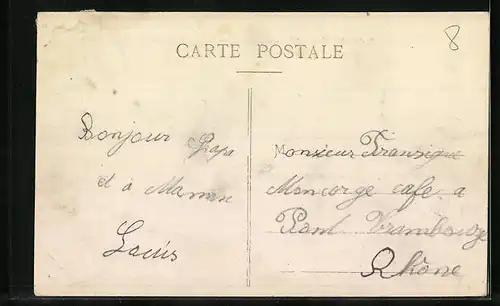 CARTE POSTALE
8
Bonjour Papa
et à Maman
Louis
Monsieur
Moncorge cafe a
Pont Trambouze
Rhône